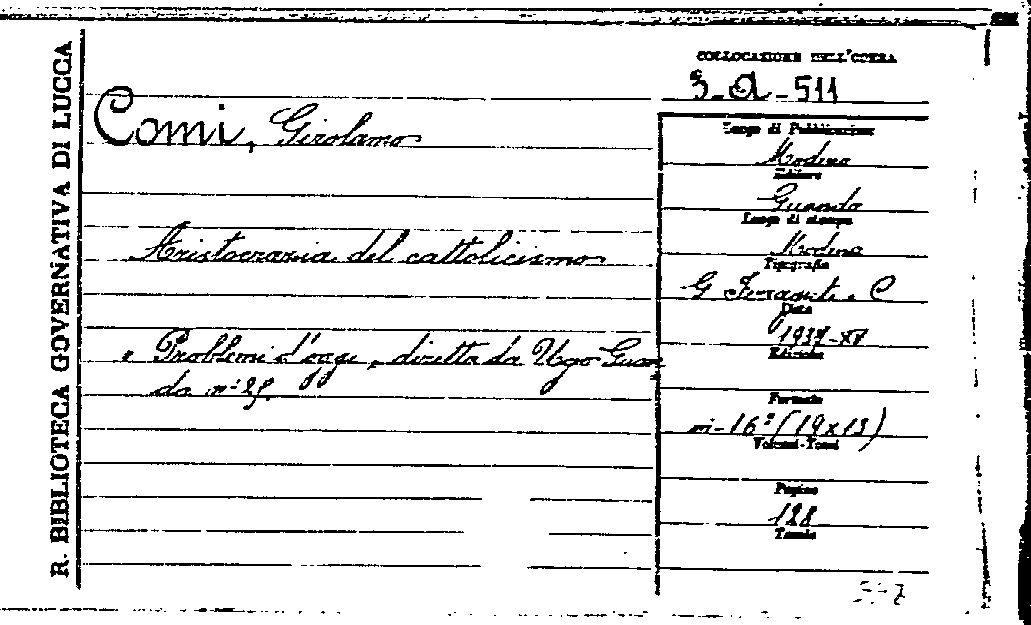 R. BIBLIOTECA GOVERNATIVA DI LUCCA
COLLOCAZIONE DELL'OPERA
3-Q-511
Comi, Girolamo
Luogo di Pubblicazione
Modena
Editore
Guanda
Luogo di stampa
Modena
Tipografia
G Ferraguti e C
Data
1937-XV
Edizione
Formato
in-16° (19x13)
Volumi-Tomi
Pagine
128
Tavole
Aristocrazia del cattolicismo
" Problemi d'oggi " diretta da Ugo Guan
da n: